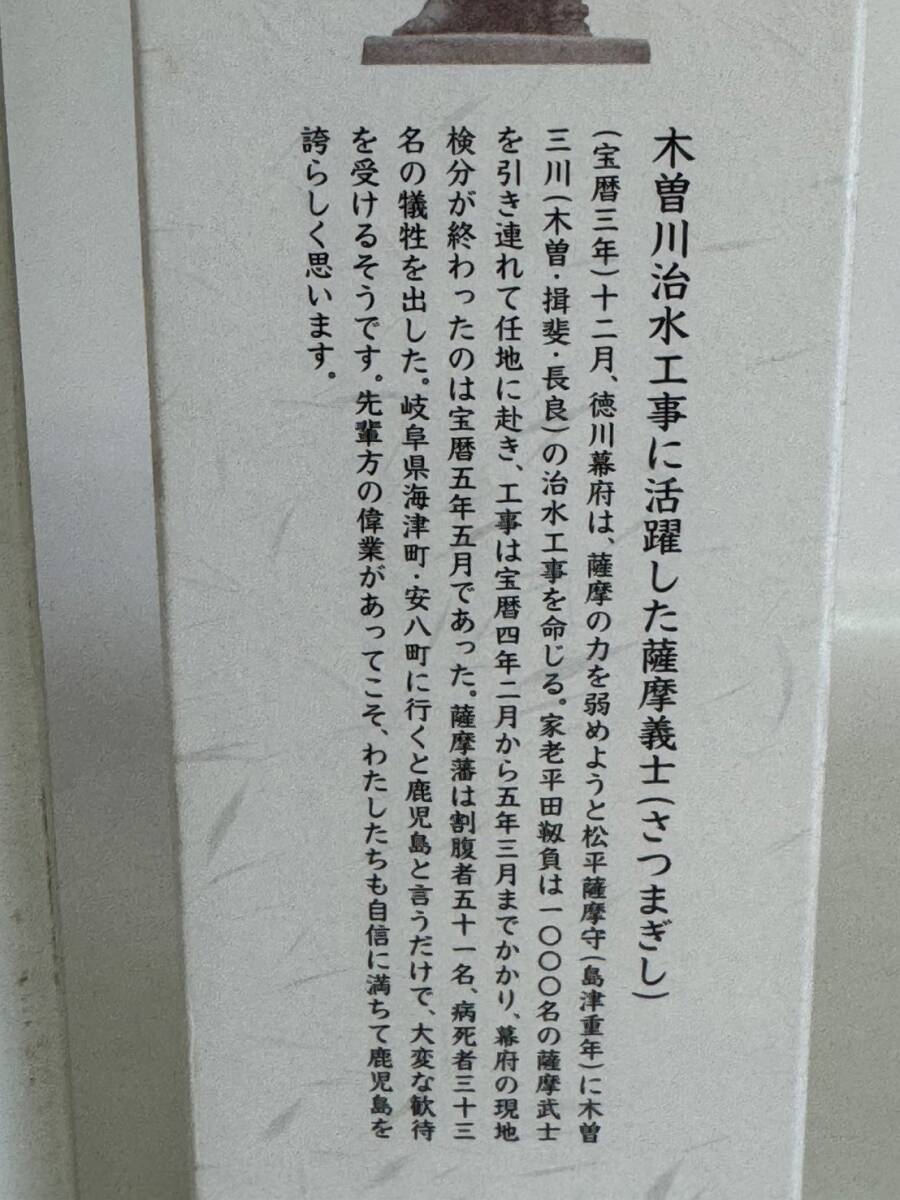 木曽川治水工事に活躍した薩摩義士(さつまぎし)
(宝暦三年)十二月、徳川幕府は、薩摩の力を弱めようと松平薩摩守(島津重年)に木曽
三川(木曽・揖斐・長良)の治水工事を命じる。家老平田靱負は一〇〇〇名の薩摩武士
を引き連れて任地に赴き、工事は宝暦四年二月から五年三月までかかり、幕府の現地
検分が終わったのは宝暦五年五月であった。薩摩藩は割腹者五十一名、病死者三十三
名の犠牲を出した。岐阜県海津町・安八町に行くと鹿児島と言うだけで、大変な歓待
を受けるそうです。先輩方の偉業があってこそ、わたしたちも自信に満ちて鹿児島を
誇らしく思います。